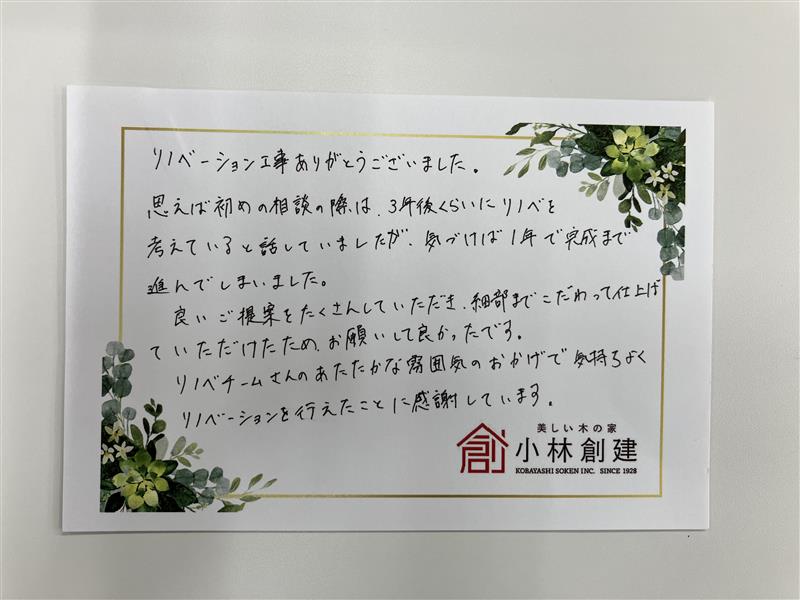 リノベーション工事ありがとうございました。
思えば初めの相談の際は、3年後くらいにリノベを
考えていると話していましたが、気づけば1年で完成まで
進んでしまいました。
良いご提案をたくさんしていただき、細部までこだわって仕上げ
ていただけたため、お願いして良かったです。
リノベチームさんのあたたかな雰囲気のおかげで気持ちよく
リノベーションを行えたことに感謝しています。
美しい木の家
創 小林創建
KOBAYASHI SOKEN INC. SINCE 1928